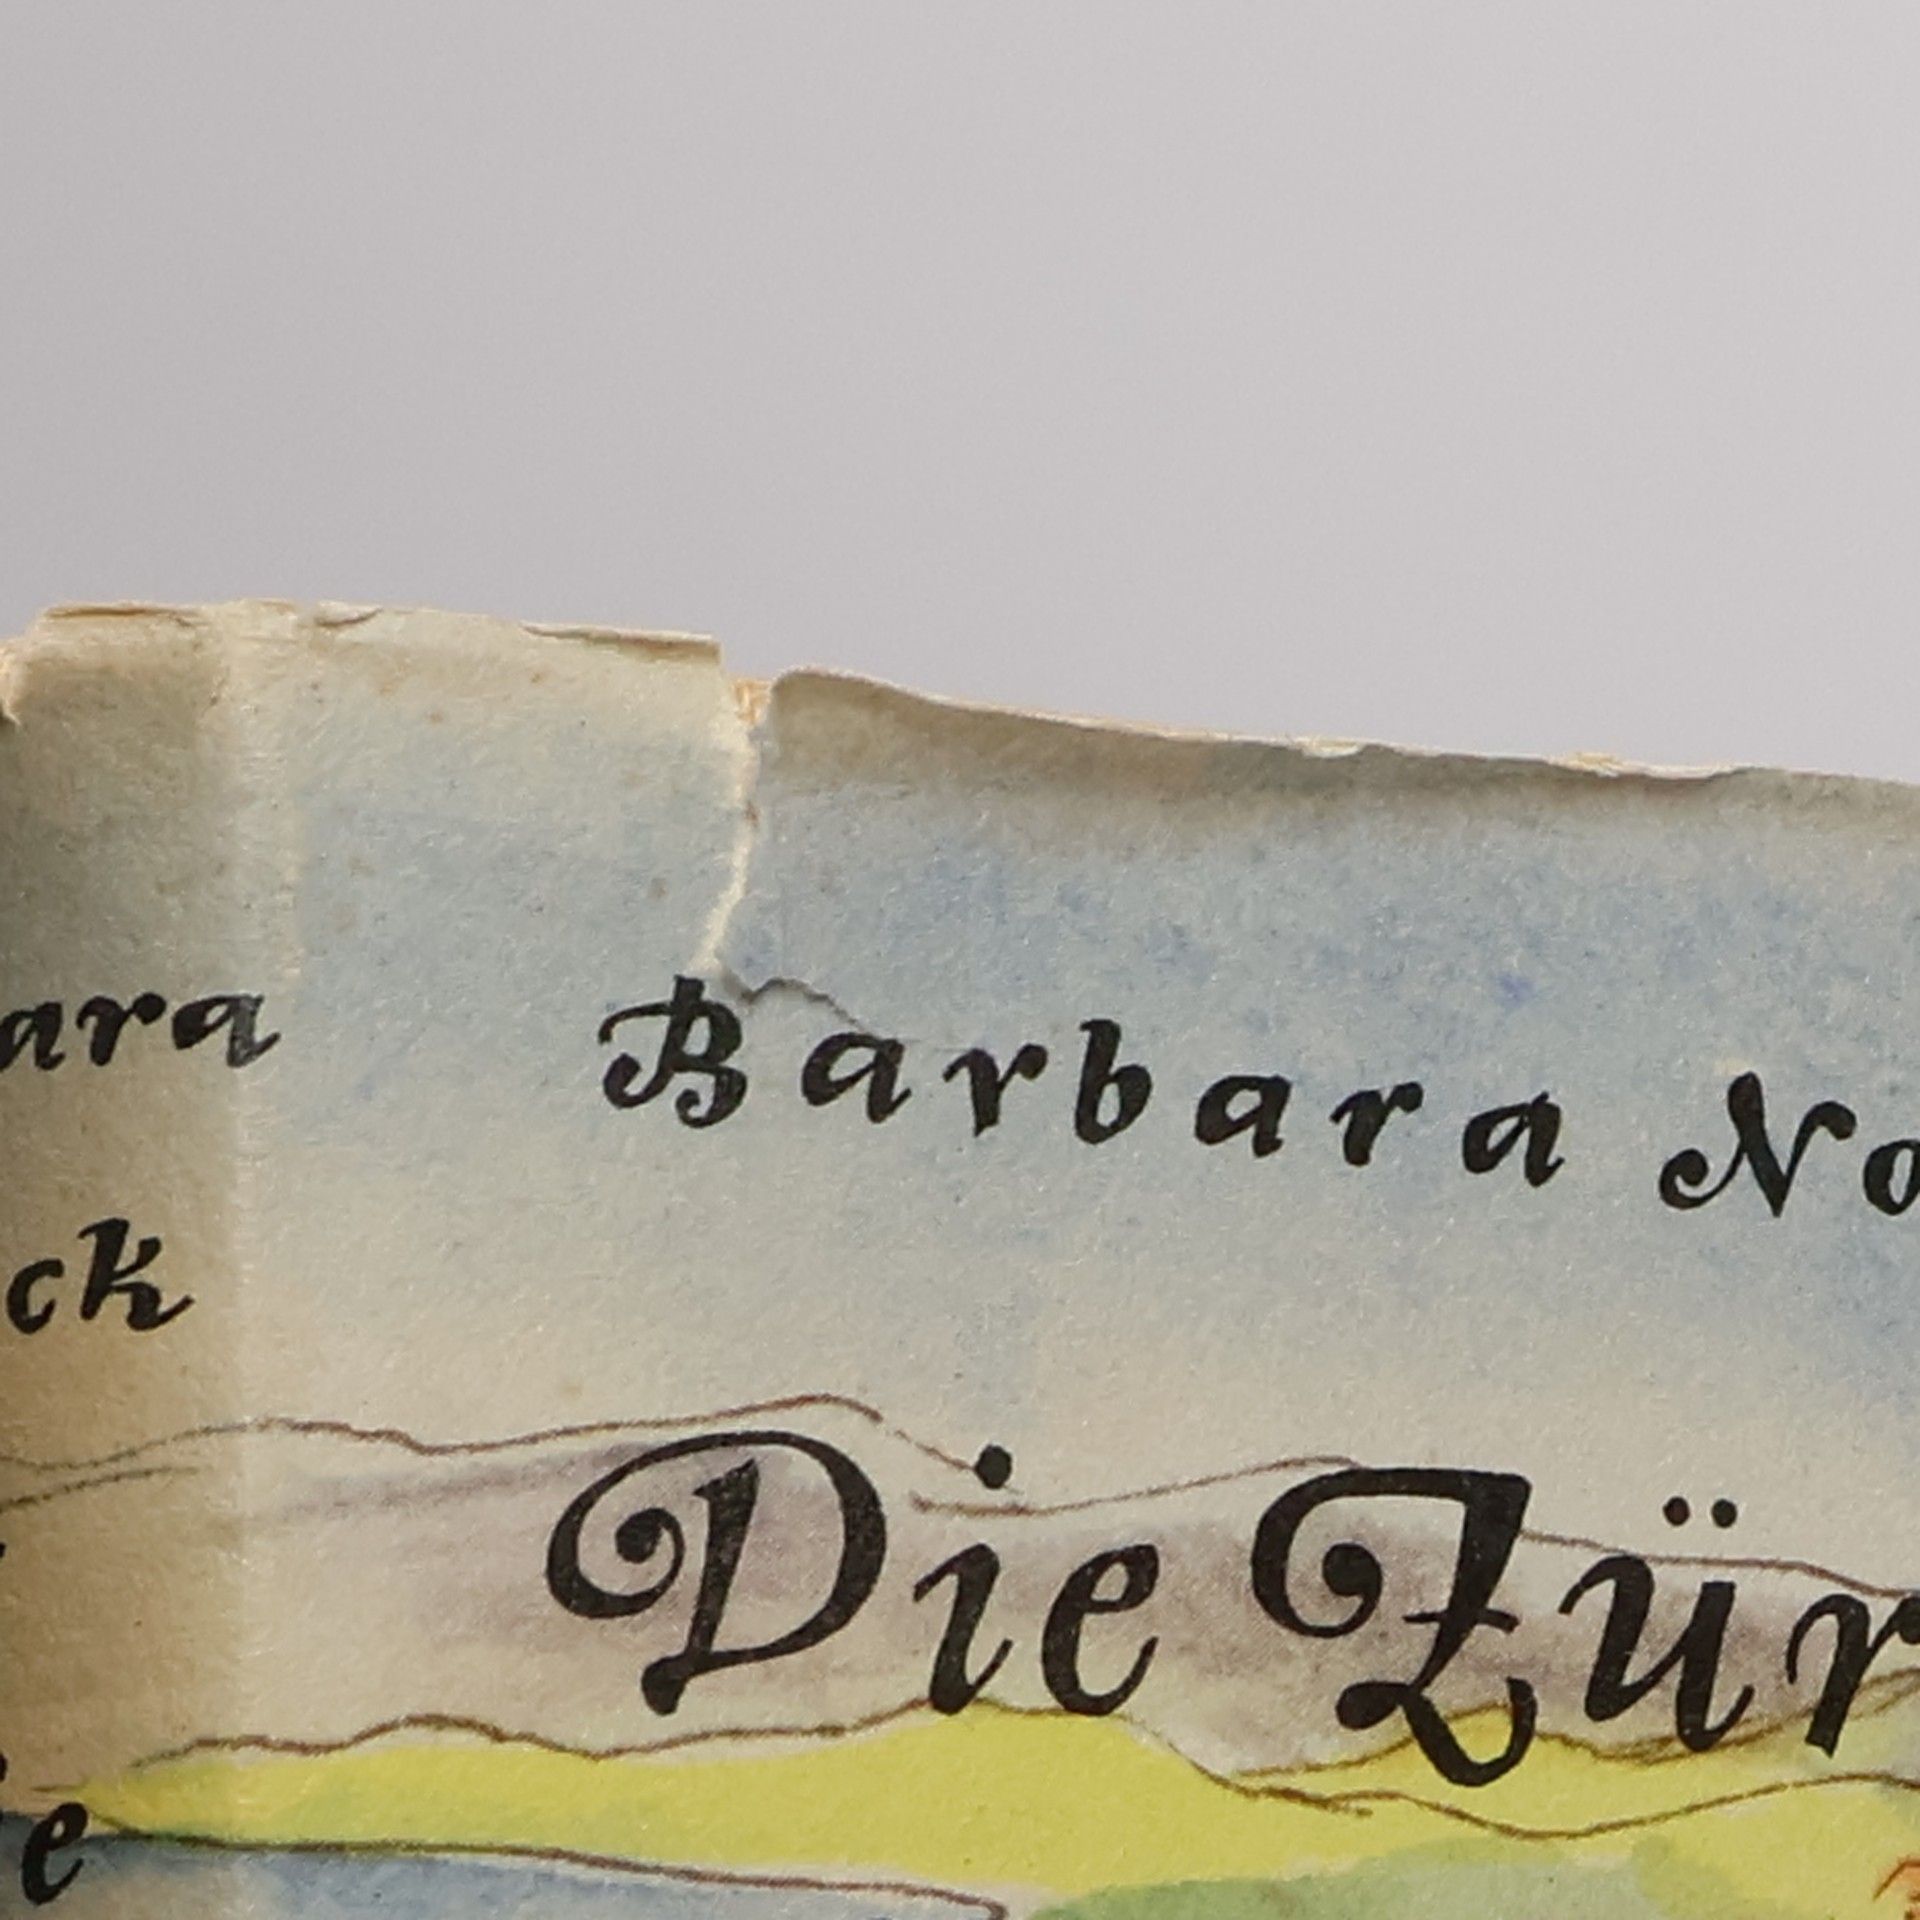 ara
ck
e
Barbara No
Die Zür